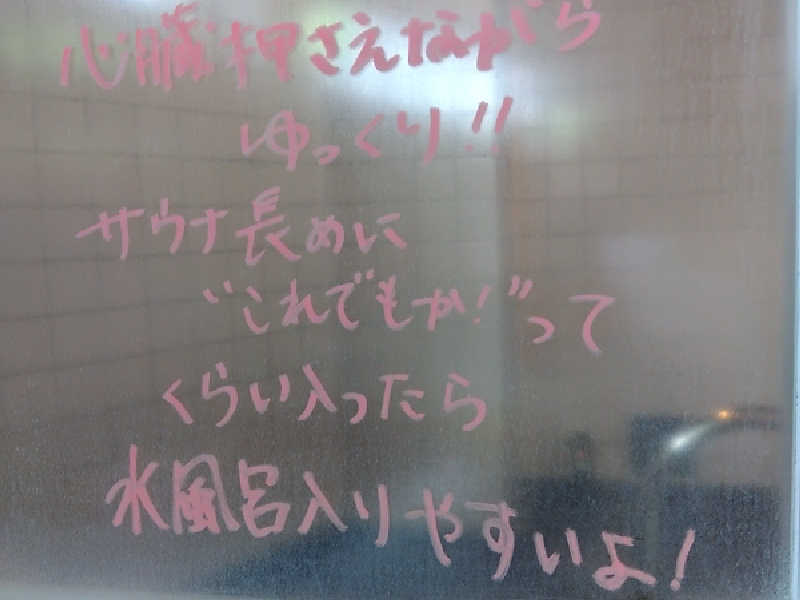 心臓押さえながら
ゆっくり!!
サウナ長めに
“これでもか!”って
くらい入ったら
水風呂入りやすいよ!